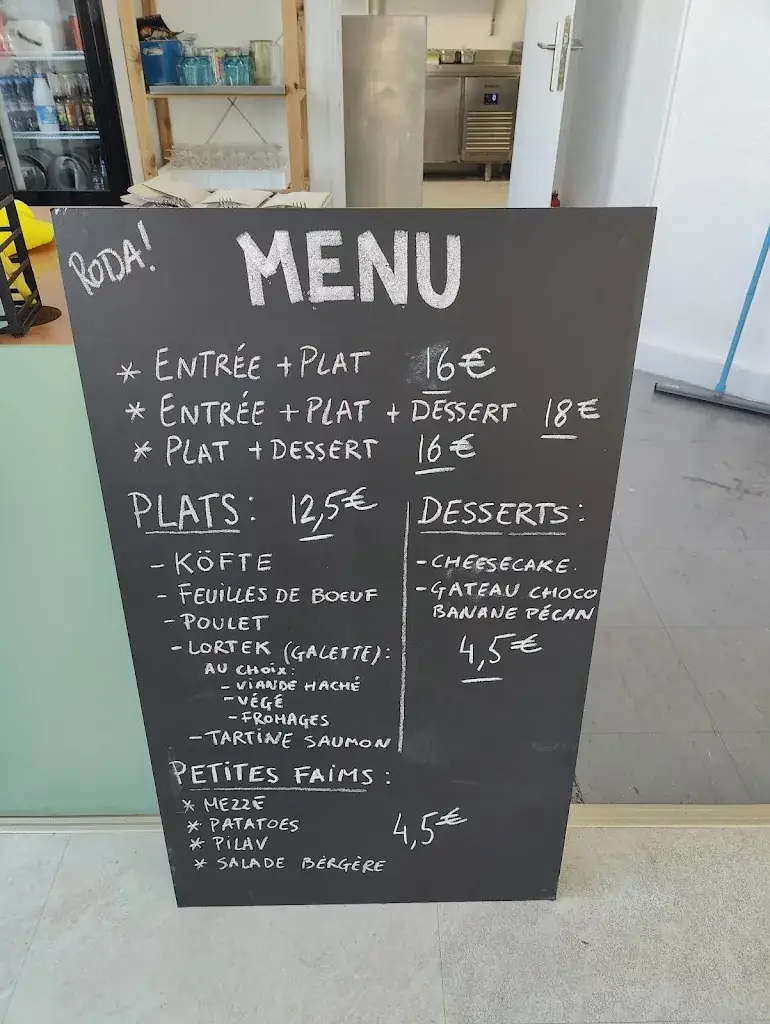 RODA!
MENU
* ENTRÉE + PLAT 16€
* ENTRÉE + PLAT + DESSERT 18€
* PLAT + DESSERT 16€
PLATS : 12,5€
- KÖFTE
- FEUILLES DE BOEUF
- POULET
- LORTEK (GALETTE) :
AU CHOIX :
- VIANDE HACHÉ
- VÉGÉ
- FROMAGES
- TARTINE SAUMON
DESSERTS :
- CHEESECAKE.
- GATEAU CHOCO
BANANE PÉCAN
4,5€
PETITES FAIMS :
* MEZZE
* PATATOES
* PILAV
* SALADE BÈRGÈRE
4,5€